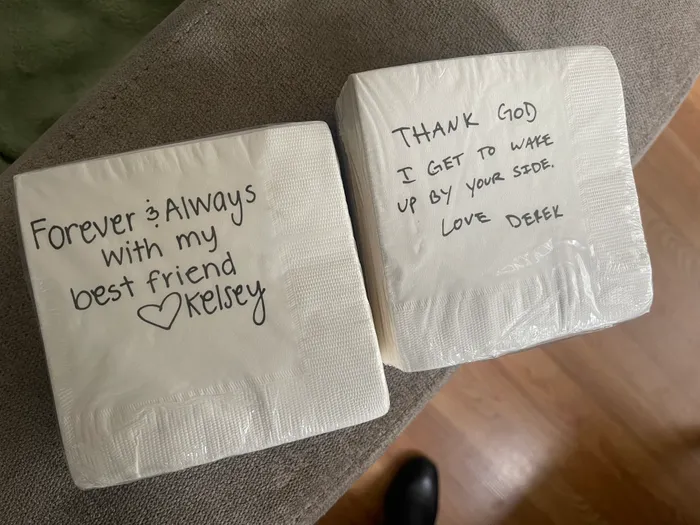 Forever & Always
with my
best friend
♡Kelsey
THANK GOD
I GET TO WAKE
UP BY YOUR SIDE.
LOVE DEREK